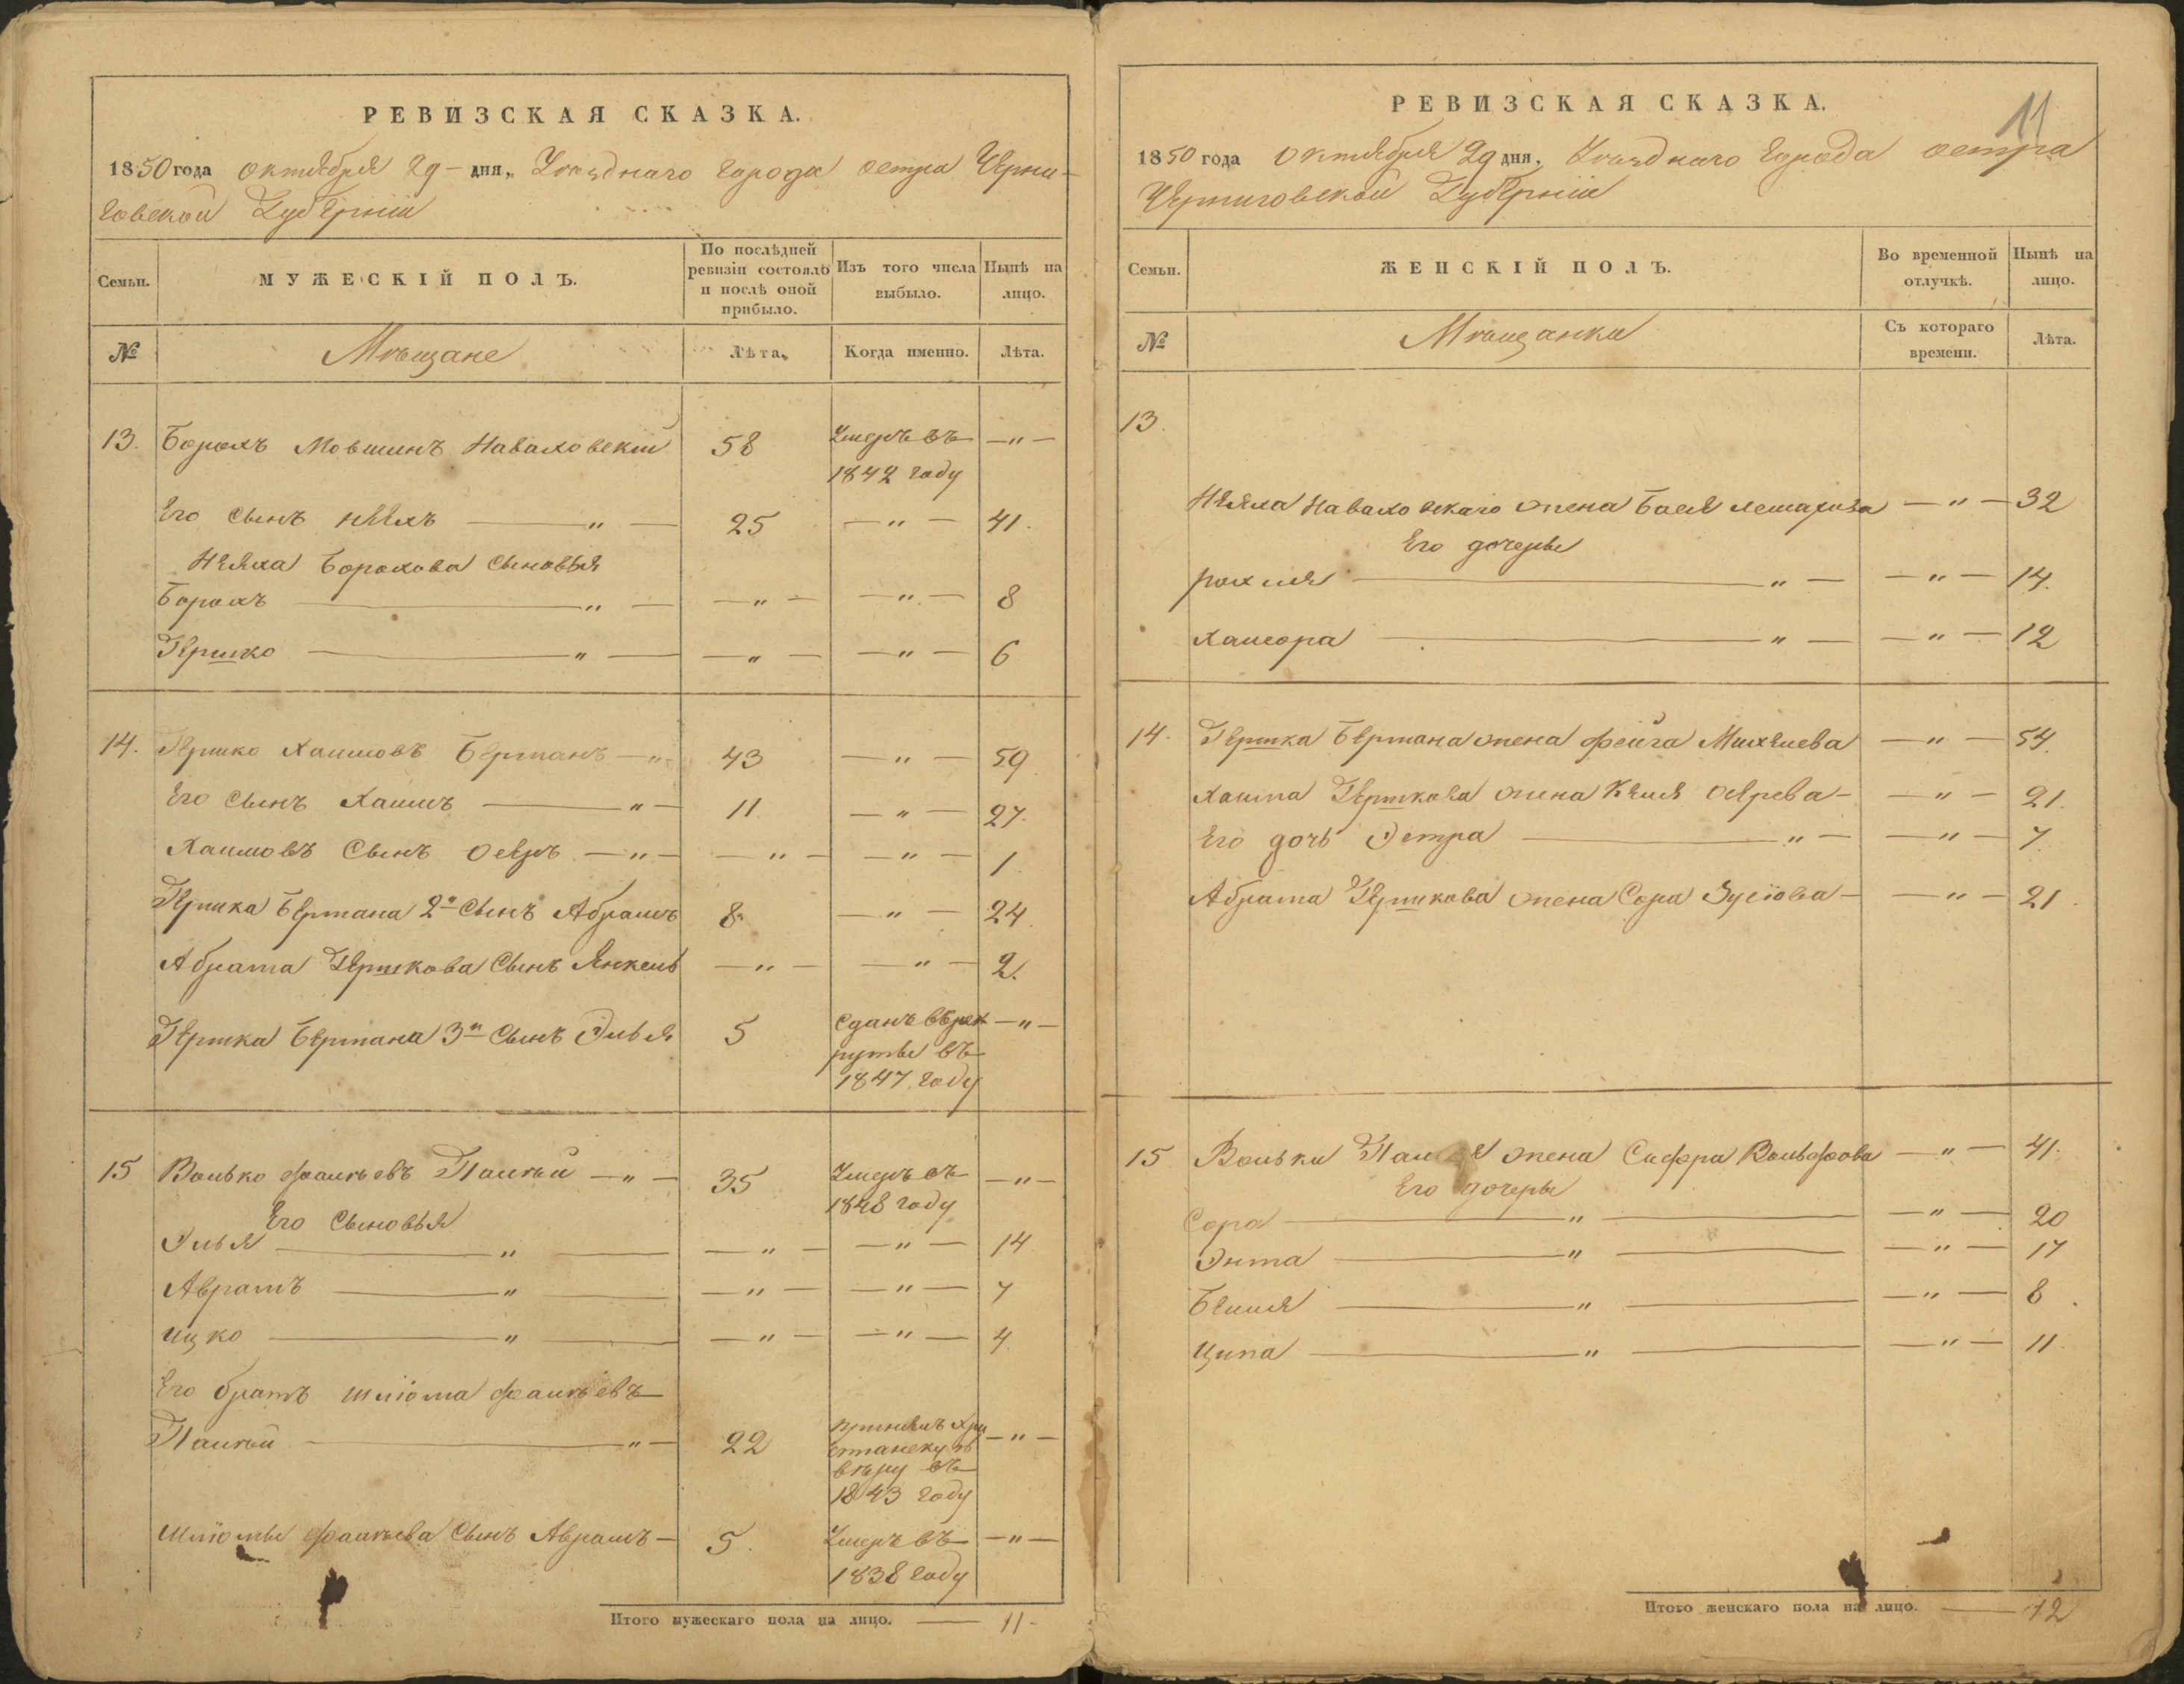 РЕВИЗСКАЯ СКАЗКА.
1850 года октября 29 – дня, Уѣзднаго города остра Черни-
говской Губерніи
Семьи.
МУЖЕСКІЙ ПОЛЪ.
По послѣдней ревизіи состояло и послѣ оной прибыло.
Изъ того числа выбыло.
Нынѣ на лицо.
№
Мѣщане
Лѣта.
Когда именно.
Лѣта.
13. Борохъ Мовшинъ Наваховскій 58 Умеръ въ —"—
1842 году
Его сынъ —"— 25 —"— 41.
Борохова сыновья
Борохъ —"— —"— —"— 8
Гершко —"— —"— —"— 6
14. Гершко Хаимовъ Берманъ —"— 43 —"— 59.
Его сынъ Хаимъ —"— 11 —"— 27.
Хаимовъ сынъ Осеръ —"— —"— —"— 1.
Гершка Бермана 2й сынъ Абрамъ 8 —"— 24.
Абрама Гершкова сынъ Янкель —"— —"— 2.
Гершка Бермана 3й сынъ Элья 5 Сданъ въ рек —"—
руты въ
1847 году
15 Волько Фалѣевъ Палѣй —"— 35 Умеръ въ —"—
1848 году
Его сыновья
Элья —"— —"— —"— 14
Аврамъ —"— —"— —"— 7
Ицко —"— —"— —"— 4.
Его братъ Шліома Фалѣевъ
Палѣй —"— 22 принялъ хри —"—
стіанскую
вѣру въ
1843 году
Шліомы Фалѣева сынъ Аврамъ — 5. Умеръ въ —"—
1838 году
Итого мужескаго пола на лицо. — 11-
11
РЕВИЗСКАЯ СКАЗКА.
1850 года октября 29 дня, Уѣзднаго города остра
Черниговской Губерніи
Семьи.
ЖЕНСКІЙ ПОЛЪ.
Во временной отлучкѣ.
Нынѣ на лицо.
№
Мѣщанки
Съ котораго времени.
Лѣта.
13.
Наваховскаго жена Бася —"— 32
Его дочери
Рохля —"— —"— 14.
Хаисора —"— —"— 12
14. Гершка Бермана жена Фейга Михелева —"— 54.
Хаима Гершкова жена Осерева — —"— 21.
Его дочь Эстра —"— —"— 7
Абрама Гершкова жена Сора Зусіова — —"— 21.
15 Вольки Палѣя жена Сифра Вольфова —"— 41.
Его дочери
Сора —"— —"— 20
Энта —"— —"— 17
Бейля —"— —"— 8.
Ципа —"— —"— 11.
Итого женскаго пола на лицо. — 12